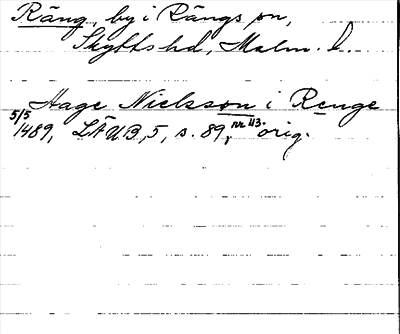 Räng, by i Rängs sn,
Skytts hd, Malm. l.
Hage Nielsson i Renge
5/5 1489, LÄUB, 5, s. 89, nr 113. orig.